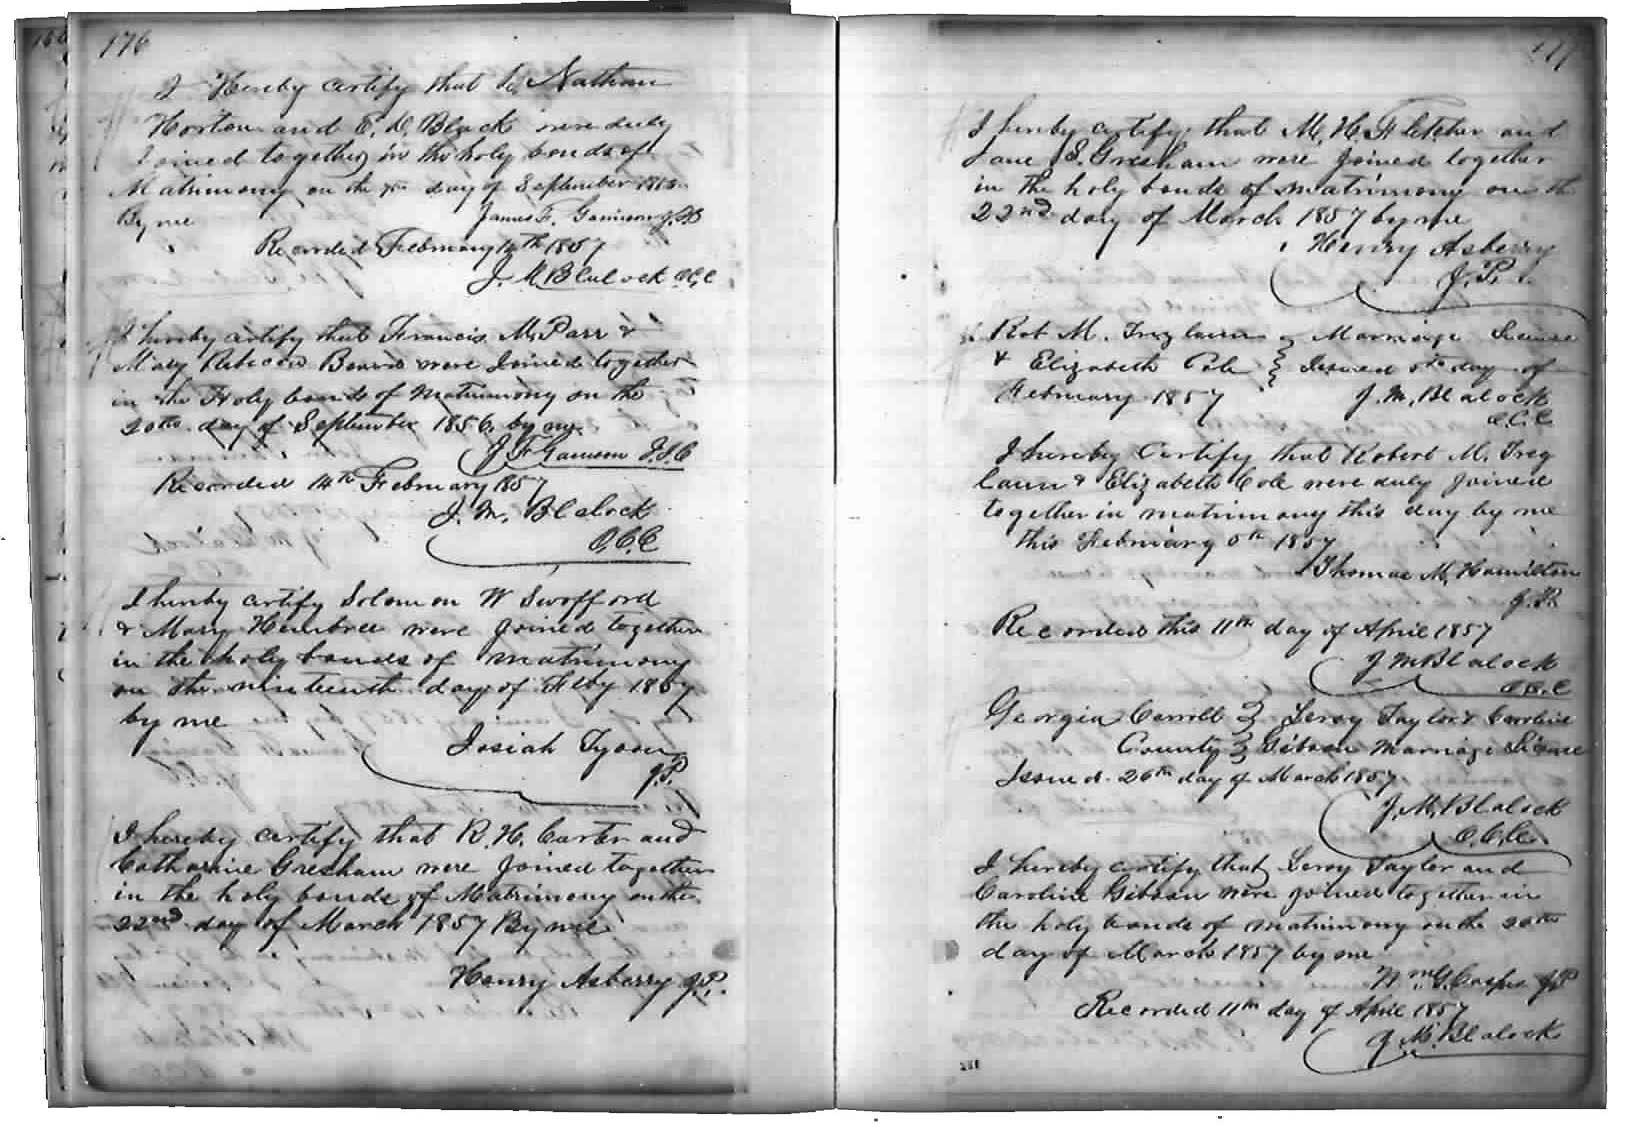 176
I Hereby certify that Nathan
Horton and E. D. Black were duly
Joined together in the holy bonds of
Matrimony on the day of September
By me James F. Garrison
Recorded February 14th 1857
J. M. Blalock C.C.C
I hereby certify that Francis M. Parr &
Mary Rebecca were Joined together
in the Holy bonds of Matrimony on the
20th day of September 1856. by me.
J F Garrison J.I.C
Recorded 14th February 1857
J. M. Blalock
C.C.C
I hereby certify Solomon W Swofford
& Mary Hembree were joined together
in the holy bonds of matrimony
on the nineteenth day of Feby 1857
by me
Josiah Tyson
J.P.
I hereby certify that R. H. Carter and
Catharine Gresham were Joined together
in the holy bonds of Matrimony on the
22nd day of March 1857 By me
Henry Asberry J.P.
177
I hereby certify that M. H. Fletcher and
Jane S. Gresham were joined together
in the holy bonds of matrimony on the
22nd day of March 1857 by me
Henry Asberry
J.P.
Rob M. Treglawn } Marriage License
& Elizabeth Cole } Issued 5th day of
February 1857 J. M. Blalock
C.C.C.
I hereby Certify that Robert M. Treg
lawn & Elizabeth Cole were duly joined
together in matrimony this day by me
this February 5th 1857
Thomas M. Hamilton
J.P.
Recorded this 11th day of April 1857
J M Blalock
C.C.C
Georgia Carroll } Leroy Taylor & Caroline
County } Gibson Marriage License
Issued 26th day of March 1857
J. M. Blalock
C.C.C.
I hereby certify that Leroy Taylor and
Caroline Gibson were joined together in
the holy bonds of matrimony on the 26th
day of March 1857 by me
Wm G. JP
Recorded 11th day of April 1857
J. M. Blalock